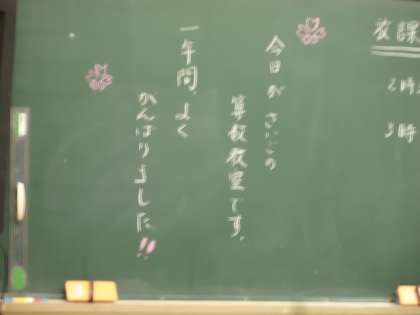 放課
2時
3時
今日がさいごの
算数教室です。
一年間、よく
がんばりました!!